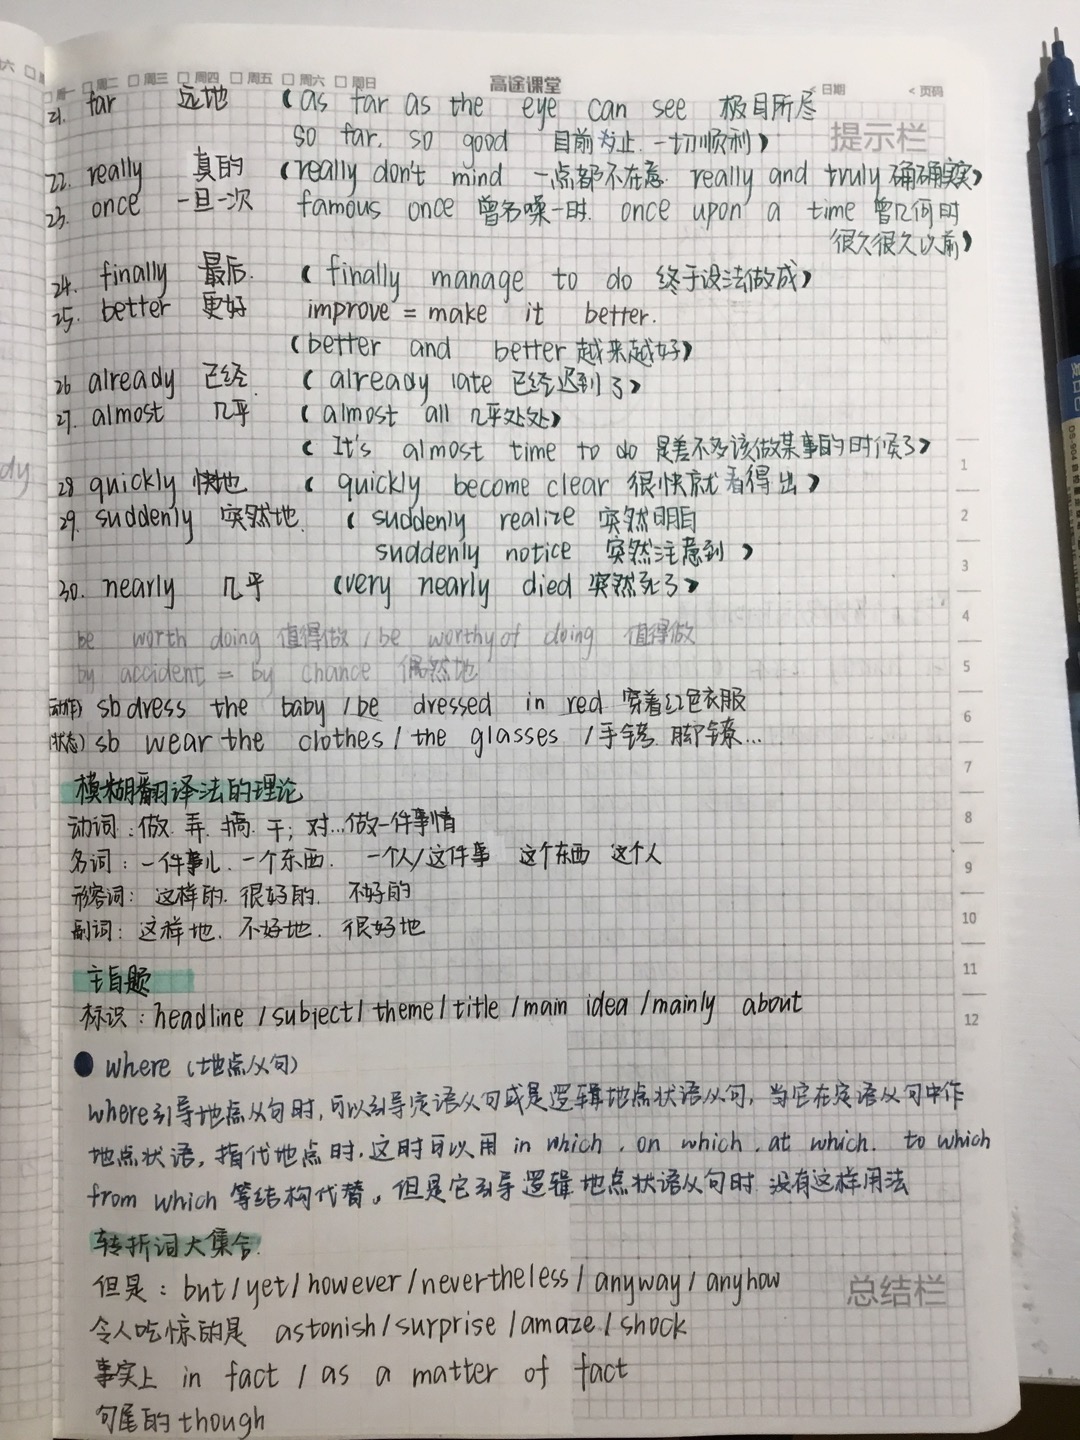 周二 周三 周四 周五 周六 周日 高途课堂 日期 < 页码
提示栏
21. far 远地 (as far as the eye can see 极目所尽
so far, so good 目前为止.一切顺利)
22. really 真的 (really don't mind 一点都不在意. really and truly 确确实实)
23. once 一旦一次 famous once 曾名噪一时. once upon a time 曾几何时
很久很久以前)
24. finally 最后. (finally manage to do 终于设法做成)
25. better 更好 improve = make it better.
(better and better 越来越好)
26 already 已经. (already late 已经迟到了)
27. almost 几乎 (almost all 几乎处处)
(It's almost time to do 是差不多该做某事的时候了)
28 quickly 快地 (quickly become clear 很快就看得出)
29. suddenly 突然地. (suddenly realize 突然明白
suddenly notice 突然注意到)
30. nearly 几乎 (very nearly died 突然死了)
be worth doing 值得做 / be worthy of doing 值得做
by accident = by chance 偶然地
(动作) sb dress the baby / be dressed in red 穿着红色衣服
(状态) sb wear the clothes / the glasses / 手铐. 脚镣...
模糊翻译法的理论
动词:做.弄.搞.干;对...做一件事情
名词:一件事儿.一个东西. 一个人/这件事 这个东西 这个人
形容词:这样的.很好的. 不好的
副词:这样地.不好地. 很好地
主旨题
标识:headline / subject / theme / title / main idea / mainly about
● where (地点从句)
where引导地点从句时,可以引导定语从句或是逻辑地点状语从句,当它在定语从句中作
地点状语,指代地点时.这时可以用 in which . on which . at which. to which
from which 等结构代替。但是它引导逻辑地点状语从句时 没有这样用法
转折词大集合.
但是:but / yet / however / nevertheless / anyway / anyhow
令人吃惊的是 astonish / surprise / amaze / shock
事实上 in fact / as a matter of fact
句尾的 though
1
2
3
4
5
6
7
8
9
10
11
12
总结栏
dy